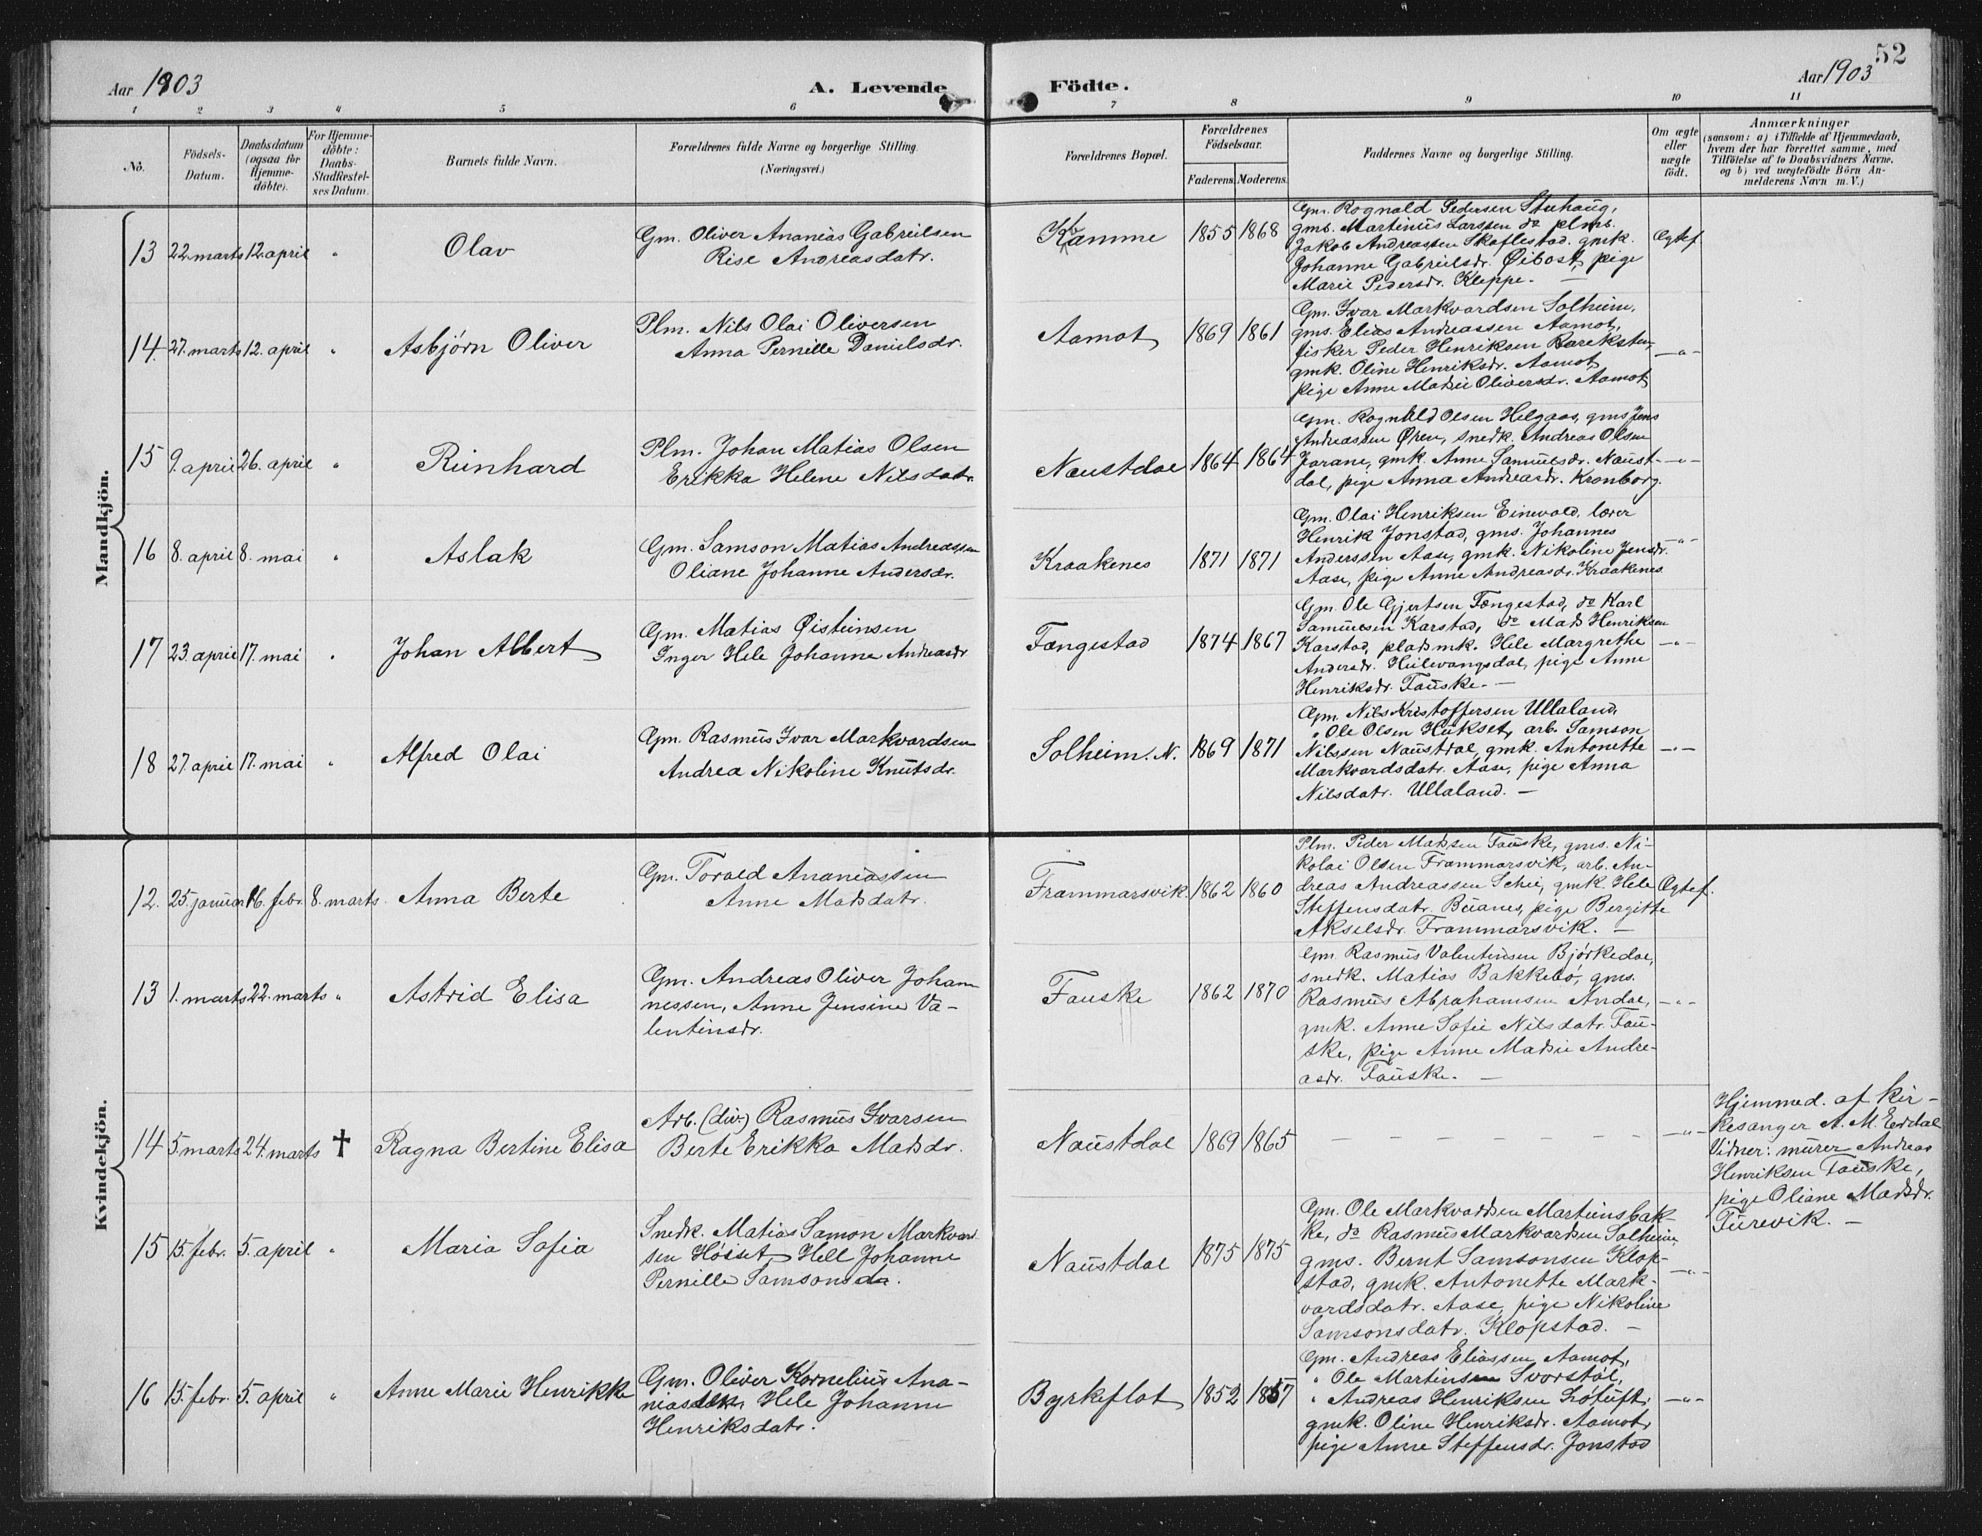 52
Aar 1903
A. Levende
Födte.
Aar 1903
1 2 3 4 5 6 7 8 9 10 11
No.
Födsels-
Datum.
Daabsdatum
(ogsaa for
Hjemme-
döbte).
For Hjemme-
döbte:
Daabs-
Stadfæstel-
ses Datum.
Barnets fulde Navn.
Forældrenes fulde Navne og borgerlige Stilling.
(Næringsvei.)
Forældrenes Bopæl.
Forældrenes
Födselsaar.
Faderens.
Moderens.
Faddernes Navne og borgerlige Stilling.
Om ægte
eller
uægte
födt.
Anmærkninger
(saasom: a) i Tilfælde af Hjemmedaab,
hvem der har forrettet samme, med
Tilföielse af to Daabsvidners Navne.
og b) ved uægtefödte Börn An-
melderens Navn m. V.)
Mandkjön.
13 22. marts 12. april "
Olav
Gm. Oliver Ananias Gabrielsen
Rise Andreasdatr.
Kamme
1855 1868
Gm. Rognald Pedersen Stuhaug,
gms. Martinus Larssen do plmb.
Jakob Andreassen Skaflestad. gmk.
Johanne Gabrielsdr. Øibost, pige
Marie Pedersdr. Kleppe. —
Ægtef.
14 27. marts 12. april "
Asbjørn Oliver
Plm. Nils Olai Oliversen
Anna Pernille Danielsdr.
Aamot
1869 1861
Gm. Ivar Markvardsen Solheim,
gms. Elias Andreassen Aamot,
fisker Peder Henriksen Bareksten,
gmk. Oline Henriksdr. Aamot,
pige Anne Madsie Oliversdr. Aamot
—"—
15 9. april 26. april "
Reinhard
Plm. Johan Matias Olsen
Erikka Helene Nilsdatr.
Naustdal
1864 1864
Gm. Rognald Olsen Helgaas, gms Jens
Andreassen Øren, snedk. Andreas Olsen
Jarane, gmk. Anne Samuelsdr. Naust-
dal, pige Anna Andreasdr. Kronborg.
—"—
16 8. april 8. mai "
Aslak
Gm. Samson Matias Andreassen
Oliane Johanne Andersdr.
Kraakenes
1871 1871
Gm. Olai Henriksen Einevold, lærer
Henrik Jonstad, gms. Johannes
Anderssen Aase, gmk. Nikoline Jensdr.
Aase, pige Anne Andreasdr. Kraakenes
—"—
17 23. april 17. mai "
Johan Albert
Gm. Matias Øisteinsen
Inger Hele Johanne Andreasdr
Fængestad
1874 1867
Gm. Ole Gjertsen Fængestad, do Karl
Samuelsen Karstad, do Mads Henriksen
Karstad, pladsmk. Hele Margrethe
Andersdr. Heilevangsdal, pige Anne
Henriksdr. Fauske. —
—"—
18 27. april 17. mai "
Alfred Olai
Gm. Rasmus Ivar Markvardsen
Andrea Nikoline Knutsdr.
Solheim. N.
1869 1871
Gm. Nils Kristoffersen Ullaland,
" Ole Olsen Hukset, arb. Samson
Nilssen Naustdal, gmk. Antonette
Markvardsdatr. Aase, pige Anna
Nilsdatr. Ullaland. —
—"—
Kvindekjön.
12. 25. januar 16. febr. 8. marts.
Anna Berte
Gm. Torald Ananiassen
Anne Madsdatr.
Frammarsvik.
1862 1860
Plm. Peder Madsen Fauske, gms. Ni-
kolai Olsen Frammarsvik, arb. An-
dreas Andreassen Schei, gmk. Hele
Steffensdatr. Buanes, pige Bergitte
Akselsdr. Frammarsvik. —
Ægtef.
13 1. marts 22. marts "
Astrid Elisa
Gm. Andreas Oliver Johan
nessen, Anne Jensine Va-
lentinsdr.
Fauske
1862 1870
Gm. Rasmus Valentinsen Bjørkedal,
snedk. Matias Bakkebø, gms.
Rasmus Abrahamsen Andal,
gmk. Anne Sofie Nilsdatr. Fau-
ske, pige Anne Madsie Andre-
asdr. Fauske. —
—"—
14 5. marts 24. marts ✝
Ragna Bertine Elisa
Arb. (div.) Rasmus Ivarsen
Berte Erikka Madsdr.
Naustdal
1869 1865
— — — — — — — —
—"—
Hjemmed. af kir-
kesanger A. M. Erdal
Vidner: murer Andreas
Henriksen Fauske,
pige Oliane Madsdr.
Furevik. —
15 15. febr. 5. april "
Maria Sofia
Snedk. Matias Samson Markvard
sen Høiset, Hele Johanne
Pernille Samsonsdr.
Naustdal
1875 1875
Gm. Ole Markvardsen Martensbak-
ke, do Rasmus Markvardsen Solheim,
gms. Bernt Samsonsen Klop-
stad, gmk. Antonette Mark-
vardsdatr. Aase, pige Nikoline
Samsonsdatr. Klopstad. —
—"—
16 15. febr. 5. april "
Anne Marie Henrikke
Gm. Oliver Kornelius Ana-
niassen, Hele Johanne
Henriksdatr.
Byrkeflot
1852 1857
Gm. Andreas Eliassen Aamot,
" Ole Martinsen Svorstøl,
" Andreas Henriksen Løtuft,
gmk. Oline Henriksdr. Aamot,
pige Anne Steffensdr. Jonstad
—"—